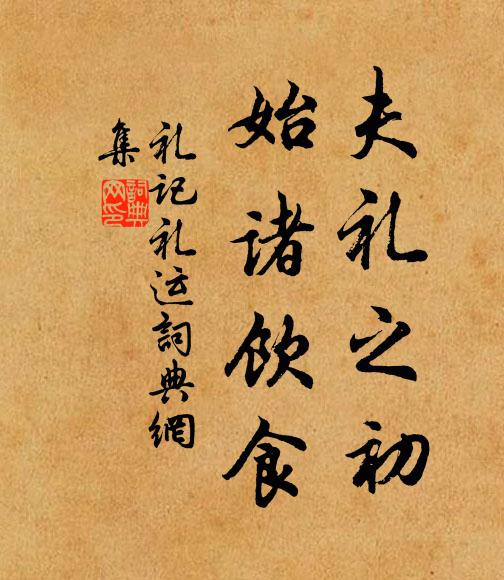 夫礼之初
始诸饮食
礼记礼运詞典網
集
詞典
网印